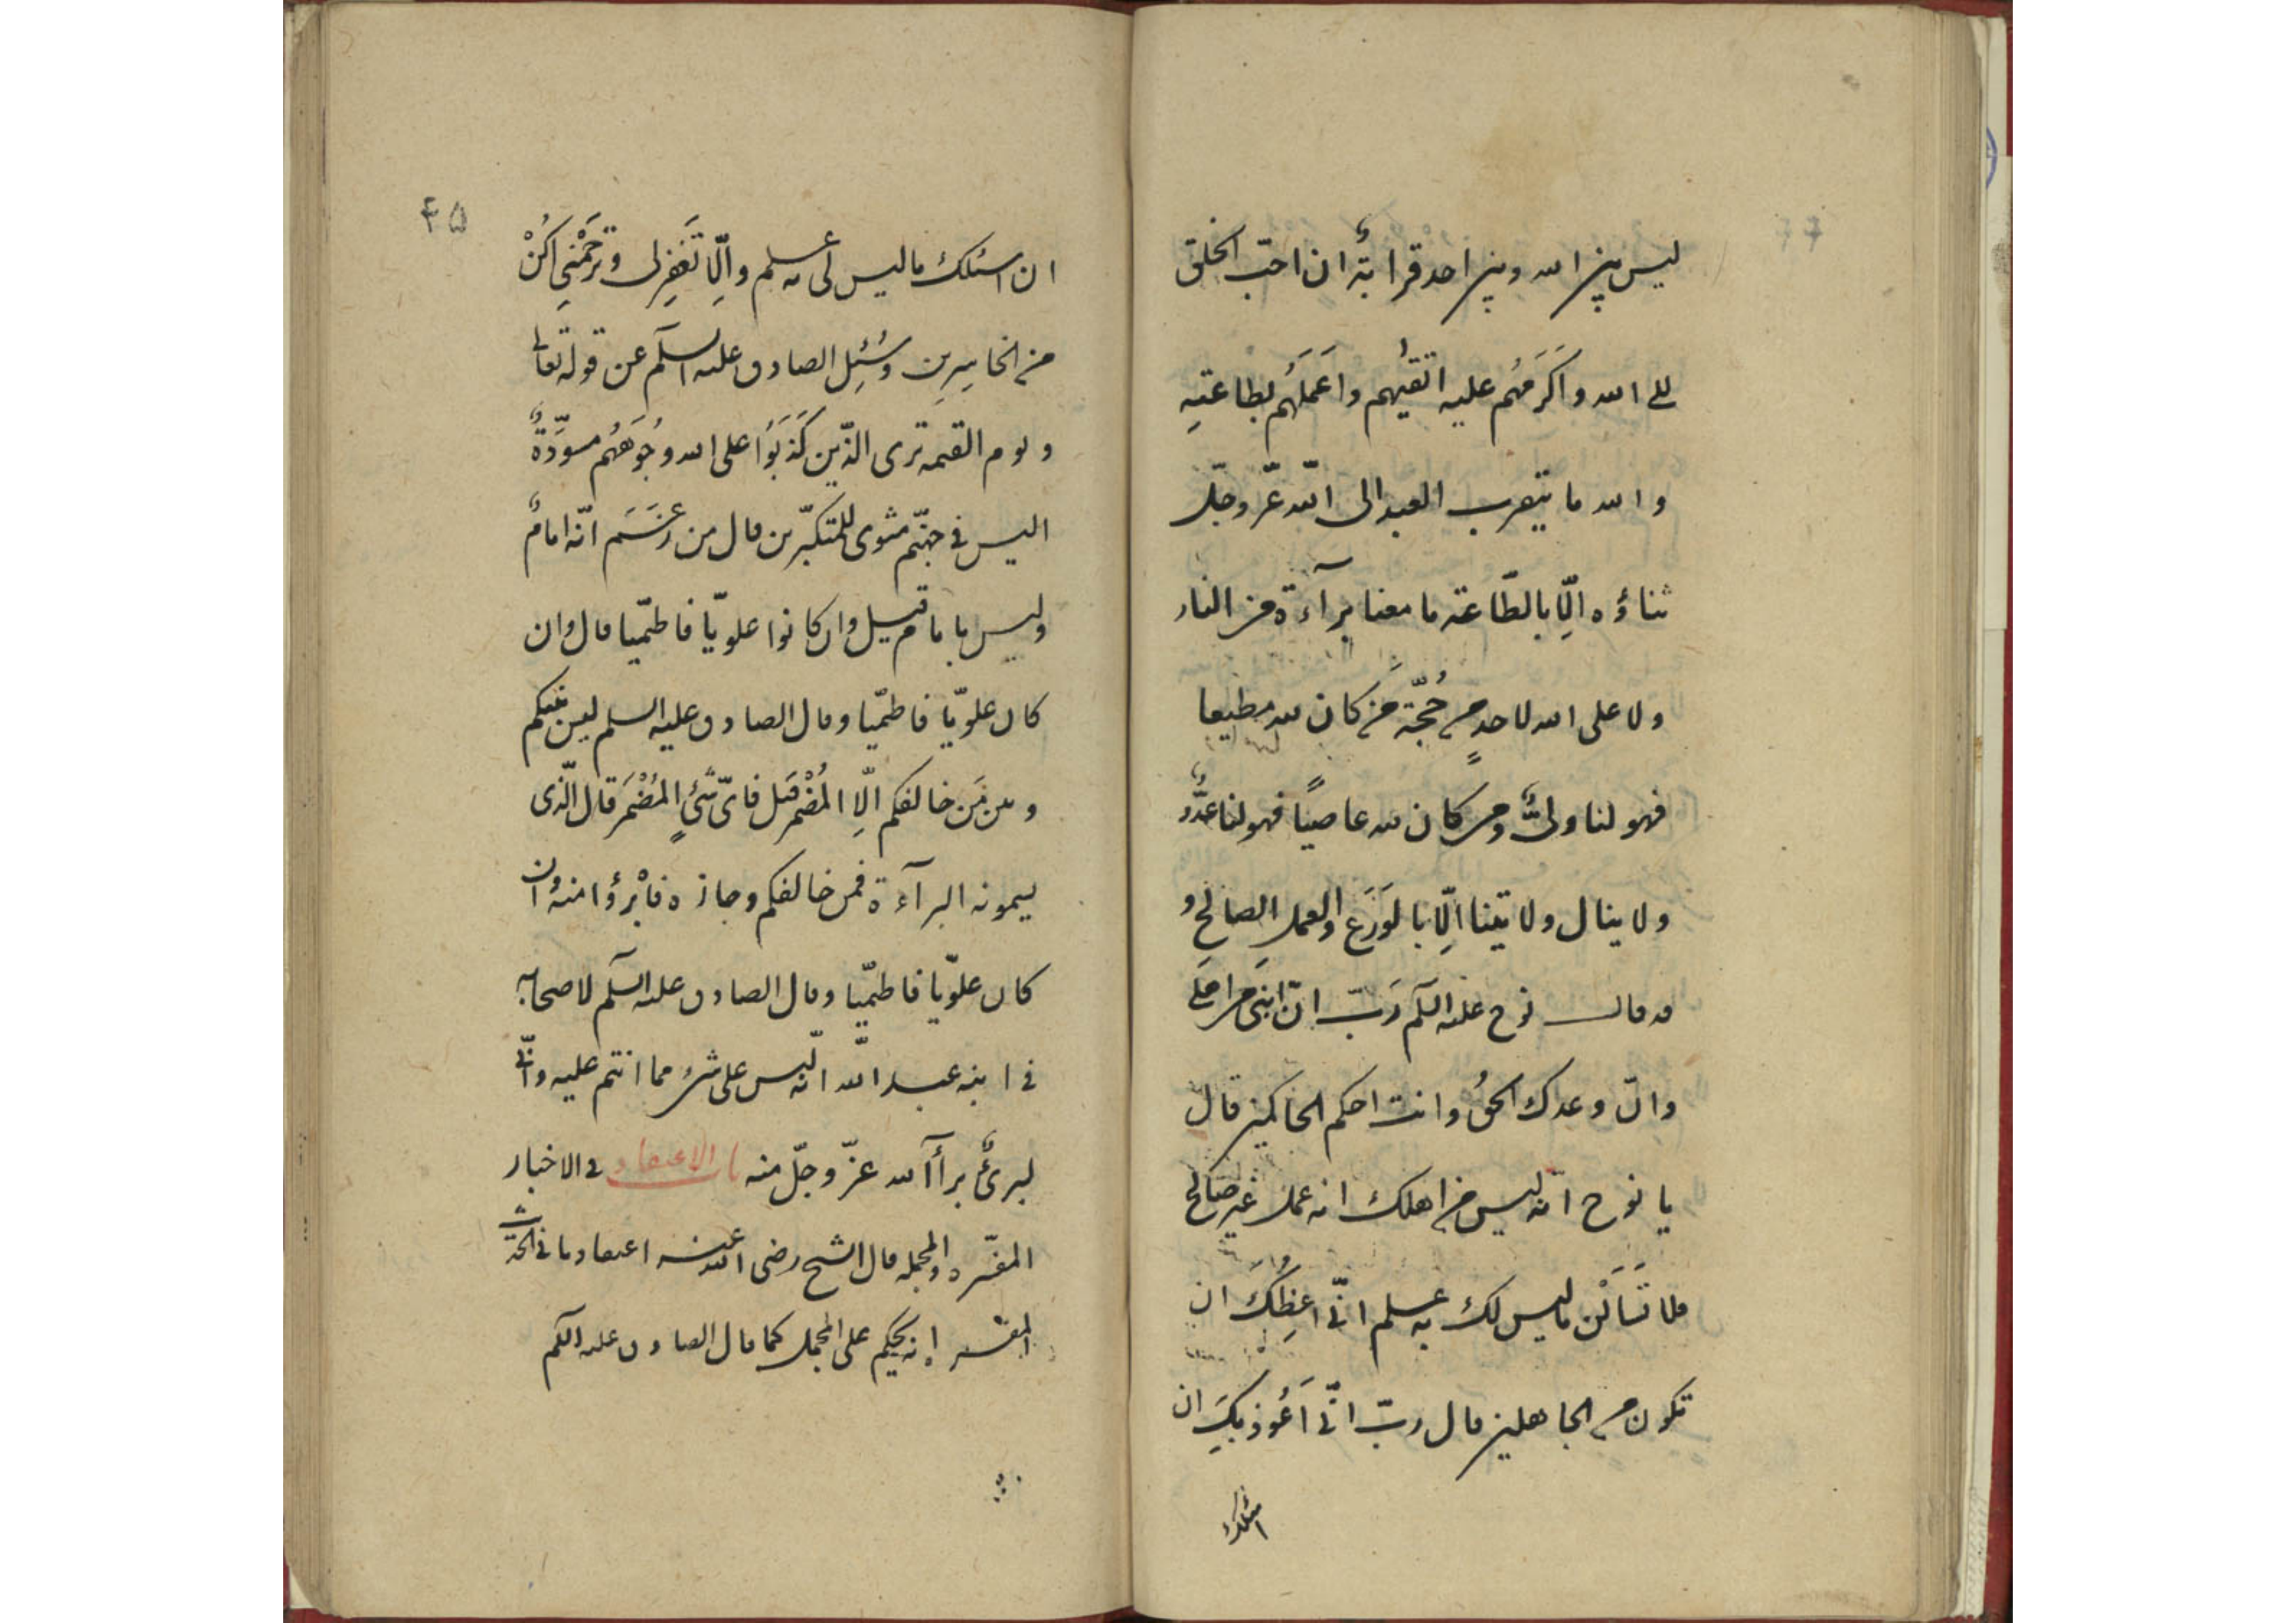 ليس بين الله وبين احد قرابةٌ ان احبّ الخلق
الى الله واكرَمَهُم عليه اتقيٰهم واعمَلَهُم بطاعتهِ
والله ما يتقرب العبد الى الله عزّ وجلّ
ثناؤه الّا بالطّاعة ما معنا برآءة من النار
ولا على الله لاحدٍ من حُجّة من كان لله مطيعا
فهو لنا ولىٌّ ومن كان لله عاصيًا فهو لنا عدُوٌّ
ولا ينال ولايتنا الّا بالوَرَع والعمل الصالح و
قد قال نوح عليه السلم رَبّ انّ ابنى من اهلى
وانّ وعدك الحقُ وانت احكم الحاكمين قال
يا نوح انّه ليس من اهلك انه عمل غير صالح
فلا تَسَألْن ما ليس لك به علم انّى اعِظُكَ ان
تكون من الجاهلين قال ربّ انّى اَعُوذ بِكَ ان
اسئلك
۴۵
ان اسئلك ما ليس لى به علم والّا تَغفِر لى وترحَمْنِى اكُنْ
من الخاسِرِين وسُئِل الصادق عليه السلم عن قوله تعالى
ويوم القيمه ترى الذّين كَذَبَوُا على الله وُجُوهُهُم مسوَدّةٌ
اليس فى جهنّم مثوى للمتكبّرين قال من زعَمَ انّه امامٌ
وليس بامام قيل وان كانوا علويّا فاطميّا قال وان
كان علويّا فاطميّا وقال الصادق عليه السلم ليس بينكم
وبين مَن خالفكم الّا المُضْمَر قيل فاىّ شئٍ المُضْمَر قال الّذى
يسمونه البرآءة فمن خالفكم وجازه فابْرؤا منه وان
كان علويّا فاطميّا وقال الصادق عليه السلم لاصحابه
فى ابنه عبد الله انّه ليس على شئ مما انتم عليه وانّى
لبرئٌ برأ الله عزّ وجلّ منه باب الاعتقاد فى الاخبار
المفسّره والمجمله قال الشيخ رضى الله عنه اعتقادنا فى الحديث
المفسر انه يحكم على المجمل كما قال الصادق عليه السلم